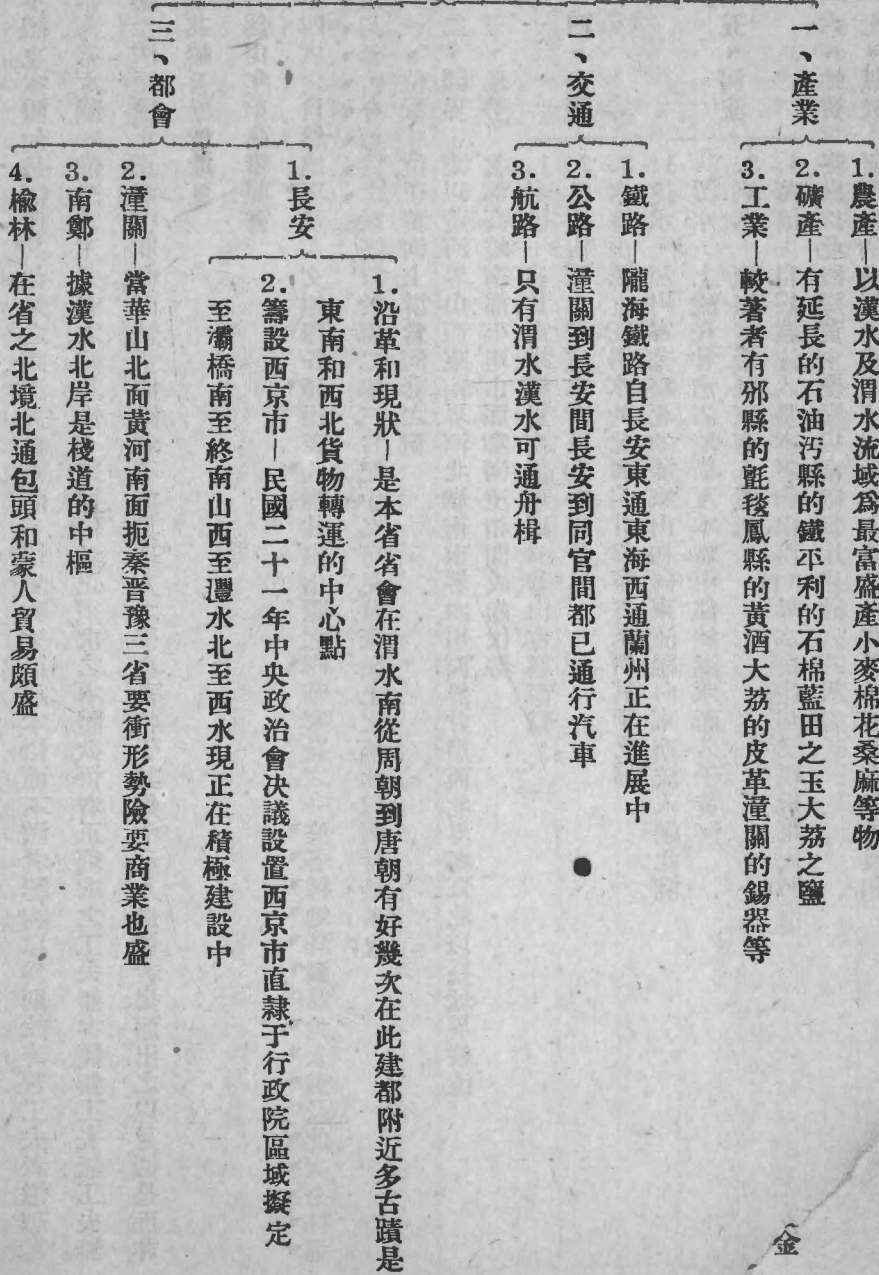 一、產業
1.農產—以漢水及渭水流域爲最富盛產小麥棉花桑麻等物
2.礦產—有延長的石油沔縣的鐵平利的石棉藍田之玉大荔之鹽
3.工業—較著者有邠縣的氈毯鳳縣的黃酒大荔的皮革潼關的錫器等
二、交通
1.鐵路—隴海鐵路自長安東通東海西通蘭州正在進展中
2.公路—潼關到長安間長安到同官間都已通行汽車
3.航路—只有渭水漢水可通舟楫
三、都會
1.長安
1.沿革和現狀—是本省省會在渭水南從周朝到唐朝有好幾次在此建都附近多古蹟是
東南和西北貨物轉運的中心點
2.籌設西京市—民國二十一年中央政治會决議設置西京市直隷于行政院區域擬定
至灞橋南至終南山西至灃水北至西水現正在積極建設中
2.潼關—當華山北面黃河南面扼秦晉豫三省要衝形勢險要商業也盛
3.南鄭—據漢水北岸是棧道的中樞
4.楡林—在省之北境北通包頭和蒙人貿易頗盛
金